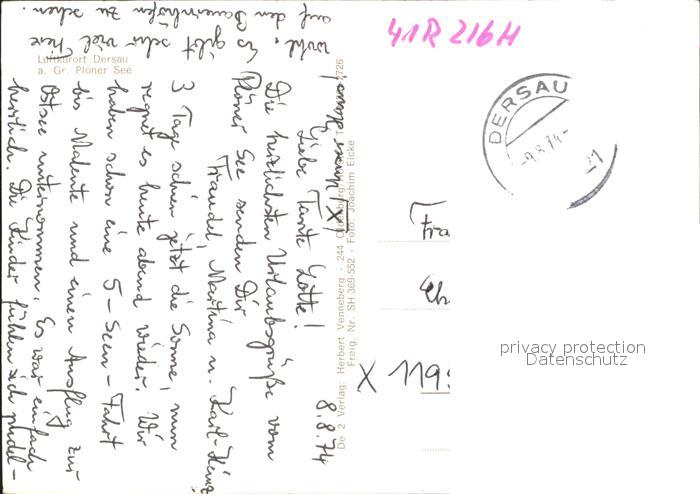 41R 216H
Luftkurort Dersau
a. Gr. Plöner See
DERSAU
-9.8.74-
21
8.8.74
(X) unser Haus!
Liebe Tante Lotte!
Die herzlichsten Urlaubsgrüße vom
Plöner See senden Dir
Traudel, Martina u. Karl-Heinz
3 Tage schien jetzt die Sonne, nun
regnet es heute abend wieder. Wir
haben schon eine 5-Seen-Fahrt
bis Malente und einen Ausflug zur
Ostsee unternommen. Es war einfach
herrlich. Die Kinder fühlen sich pudel-
wohl. Es gibt sehr viel Tiere
auf den Bauernhöfen zu sehen.
De 2 Verlag: Herbert Venneberg - 244
Freig. Nr. SH 369-552 - Foto: Joachim Eicke
X 119
privacy protection
Datenschutz